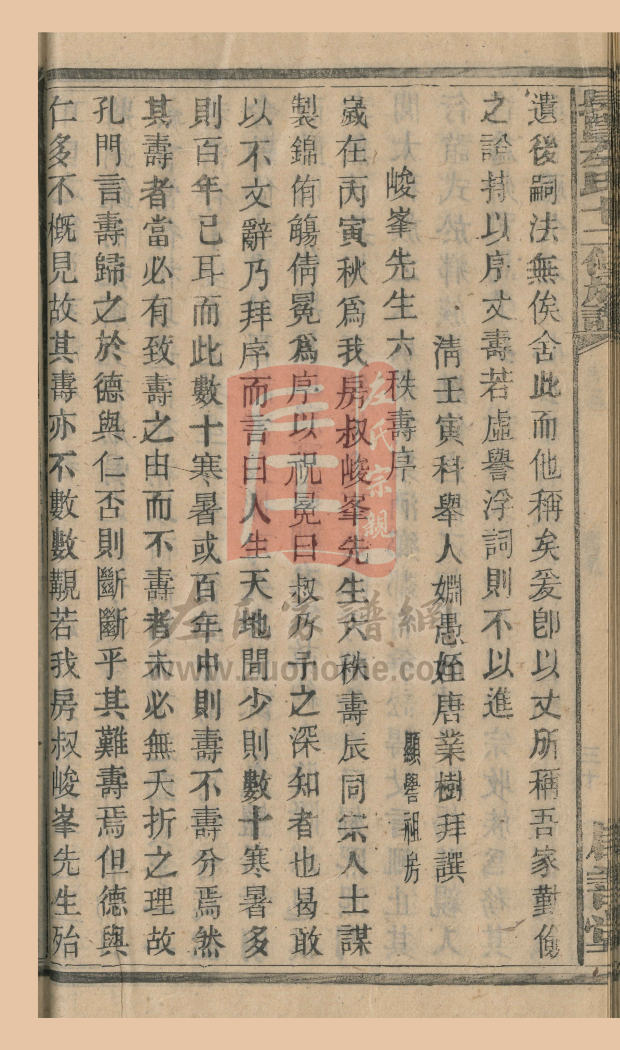 遺後嗣法無俟舍此而他稱矣爰卽以丈所稱吾家勤儉
之論持以序丈壽若虛譽浮詞則不以進
清壬寅科舉人姻愚姪唐業樹拜譔
峻峯先生六秩壽序 顯譽祖房
歲在丙寅秋爲我房叔峻峯先生六秩壽辰同宗人士謀
製錦侑觴倩冕爲序以祝冕曰叔乃予之深知者也曷敢
以不文辭乃拜序而言曰人生天地間少則數十寒暑多
則百年已耳而此數十寒暑或百年中則壽不壽分焉然
其壽者當必有致壽之由而不壽者未必無夭折之理故
孔門言壽歸之於德與仁否則斷斷乎其難壽焉但德與
仁多不概見故其壽亦不數數覯若我房叔峻峯先生殆
左氏宗親
左氏家譜網
www.zuohome.com